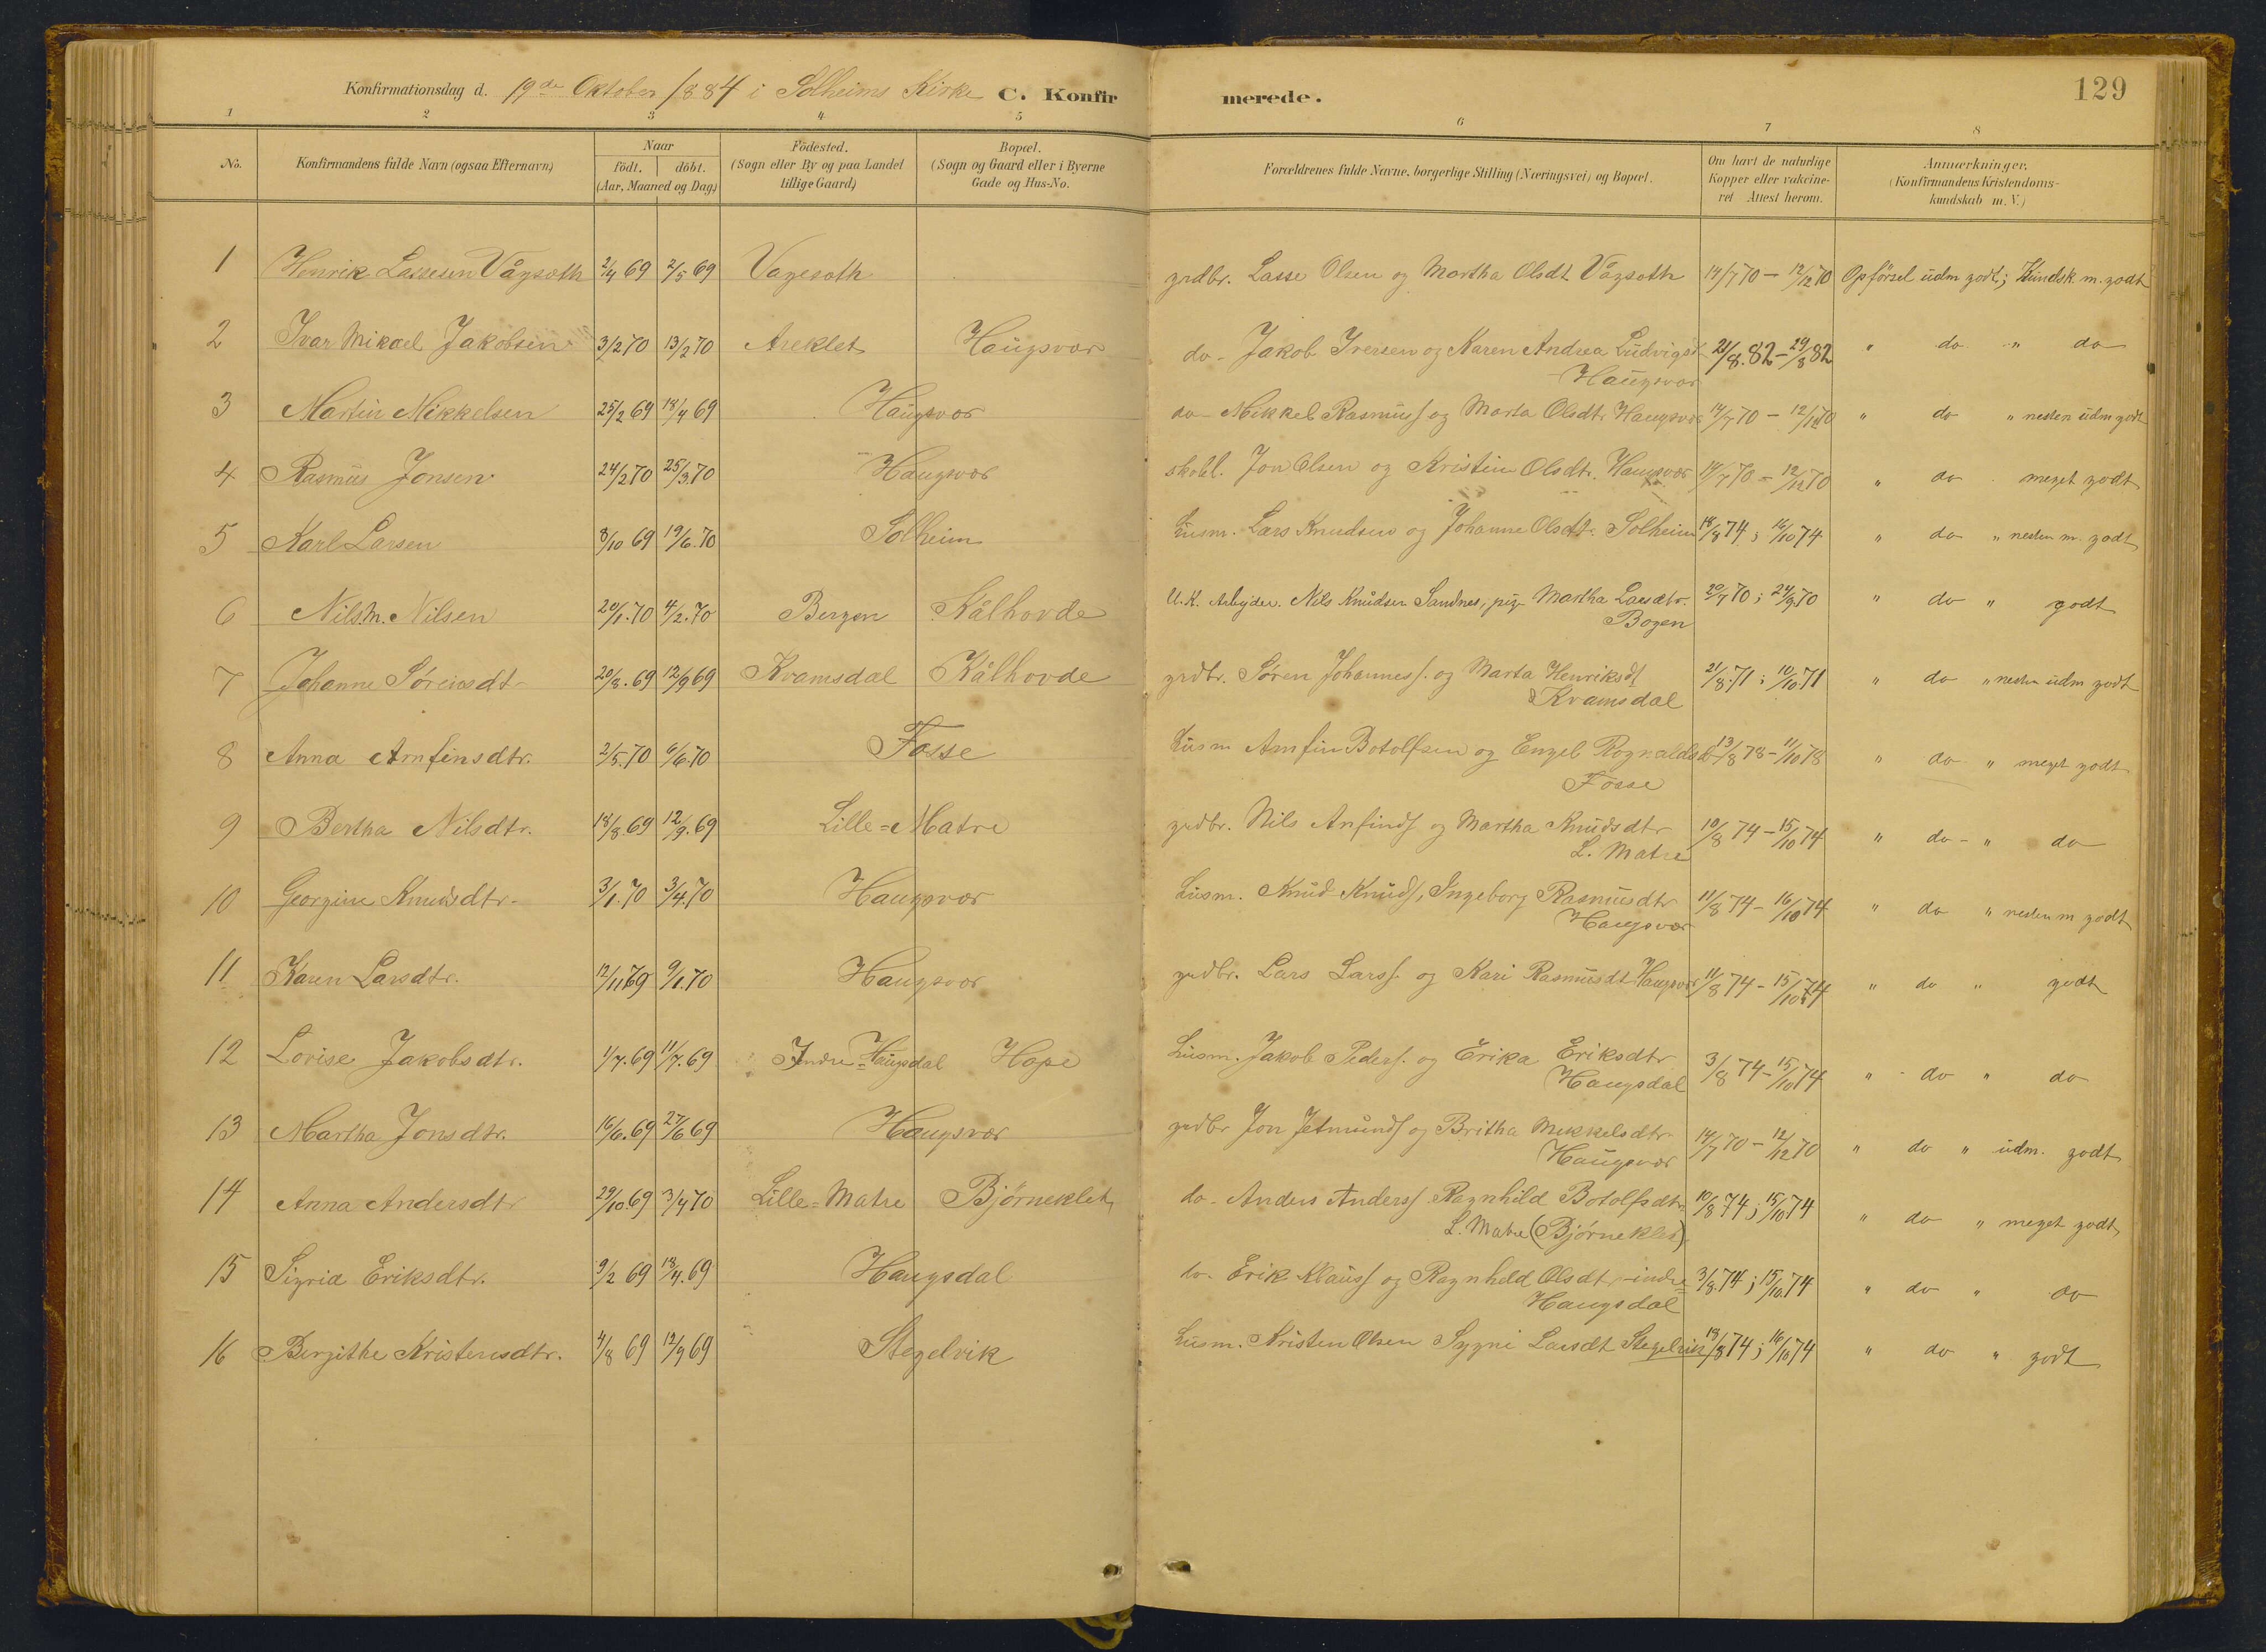 Konfirmationsdag d. 19de Oktober 1884 i Solheims Kirke C. Konfirmerede. 129
1 2 3 4 5 6 7 8
No. Konfirmandens fulde Navn (ogsaa Efternavn) Naar födt. döbt. (Aar, Maaned og Dag) Födested. (Sogn eller By og paa Landet tillige Gaard) Bopæl. (Sogn og Gaard eller i Byerne Gade og Hus-No. Forældrenes fulde Navne, borgerlige Stilling (Næringsvei) og Bopæl. Om havt de naturlige Kopper eller vakcineret Attest herom. Anmærkninger, (Konfirmandens Kristendomskundskab m. V.)
1 Henrik Lassesen Vågsøth 2/4 69 2/5 69 Vagesøth grdbr. Lasse Olsen og Martha Olsdt. Vågsøth 14/7 70 - 12/12 70 Opförsel udm godt; Kundsk. m. godt
2 Ivar Mikael Jakobsen 3/2 70 13/2 70 Areklet Haugsvær do - Jakob Iversen og Karen Andrea Ludvigsd 21/8. 82 - 29/8 82 " do " do
Haugsvær
3 Martin Mikkelsen 25/2 69 18/4 69 Haugsvær do - Mikkel Rasmuss. og Marta Olsdtr Haugsvær 14/7 70 - 12/12 70 " do " nesten udm godt
4 Rasmus Jonsen 24/2 70 25/3. 70 Haugsvær skoll. Jon Olsen og Kristine Olsdtr. Haugsvær 14/7 70 - 12/12 70 " do meget godt
5 Karl Larsen 8/10 69 19/6. 70 Solheim Husm. Lars Knudsen og Johanne Olsdtr. Solheim 18/8 74 ; 16/10 74 " do " nesten m. godt
6 Nils M. Nilsen 20/1. 70 4/2. 70 Bergen Kålhovde U.K. Arbejder. Nils Knudsen Sandnes, pige Martha Larsdtr. 20/7 70 ; 24/9. 70 " do " godt
Bogen
7 Johanne Sørensdt 20/8. 69 12/9 69 Kvamsdal Kålhovde grdbr. Søren Johanness. og Marta Henriksd 21/8. 71 ; 10/10. 71 " do " nesten udm godt
Kvamsdal
8 Anna Arnfinsdtr. 2/5. 70 6/6. 70 Fosse Husm Arnfin Botolfsen og Engel Rognaldsd 13/8 78 - 11/10 78 " do " meget godt
Fosse
9 Bertha Nilsdtr. 18/8 69 12/9. 69 Lille=Matre grdbr. Nils Anfinds og Martha Knudsdtr 10/8 74 - 15/10 74 " do - " do
L. Matre
10 Georgine Knudsdtr. 3/1. 70 3/4. 70 Haugsvær Husm. Knud Knuds, Ingeborg Rasmusdtr 11/8 74 - 16/10 74 " do " nesten m godt
Haugsvær
11 Karen Larsdtr. 12/11 69 9/1. 70 Haugsvær grdbr. Lars Larss. og Kari Rasmusdt Haugsvær 11/8 74 - 15/10 74 " do " godt
12 Lovise Jakobsdtr. 1/7. 69 11/7. 69 Indre=Haugsdal Hope Husm. Jakob Peders. og Erika Eriksdtr 3/8 74 - 15/10 74 " do " do
Haugsdal
13 Martha Jonsdtr. 16/6. 69 27/6 69 Haugsvær grdbr Jon Jetmunds og Britha Mikkelsdtr 14/7 70 - 12/12 70 " do " udm. godt
Haugsvær
14 Anna Andersdtr 29/10. 69 3/4 70 Lille=Matre Björneklet do - Anders Anderss. Ragnhild Botolfsdtr 10/8 74 ; 15/10 74 " do " meget godt
L. Matre (Bjørneklet)
15 Sigrid Eriksdtr. 9/2 69 18/4. 69 Haugsdal do. Erik Klauss og Ragnhild Olsdtr, indre= 3/8. 74 ; 15/10. 74 " do " do
Haugsdal
16 Bergithe Kristensdtr. 4/8 69 12/9 69 Stegelvik Husm. Kristen Olsen Sygni Larsdt Stegelvik 18/8 74 ; 16/10 74 " do " godt